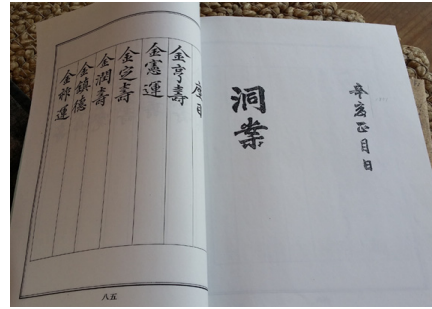 辛亥正月日
洞案
座目
金亨壽
金憲運
金定壽
金潤壽
金鎮德
金祚運
八五